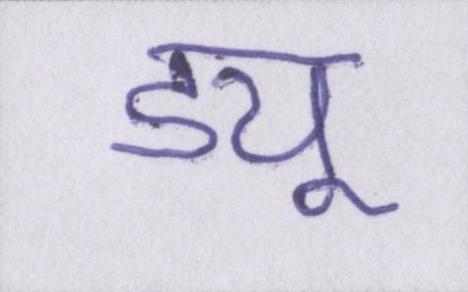 ड्यू